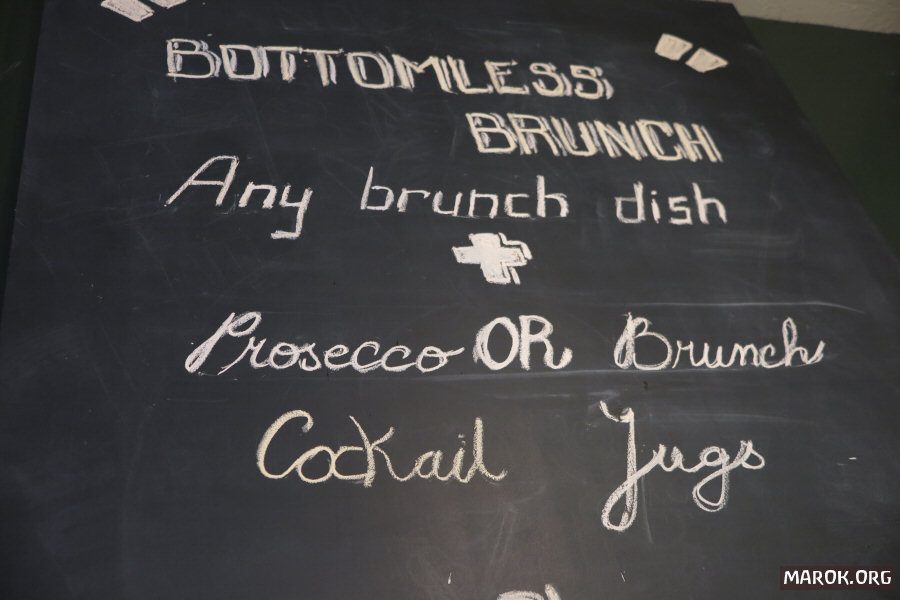 BOTTOMLESS
BRUNCH
Any brunch dish
+
Prosecco OR Brunch
Cockail Jugs
MAROK.ORG